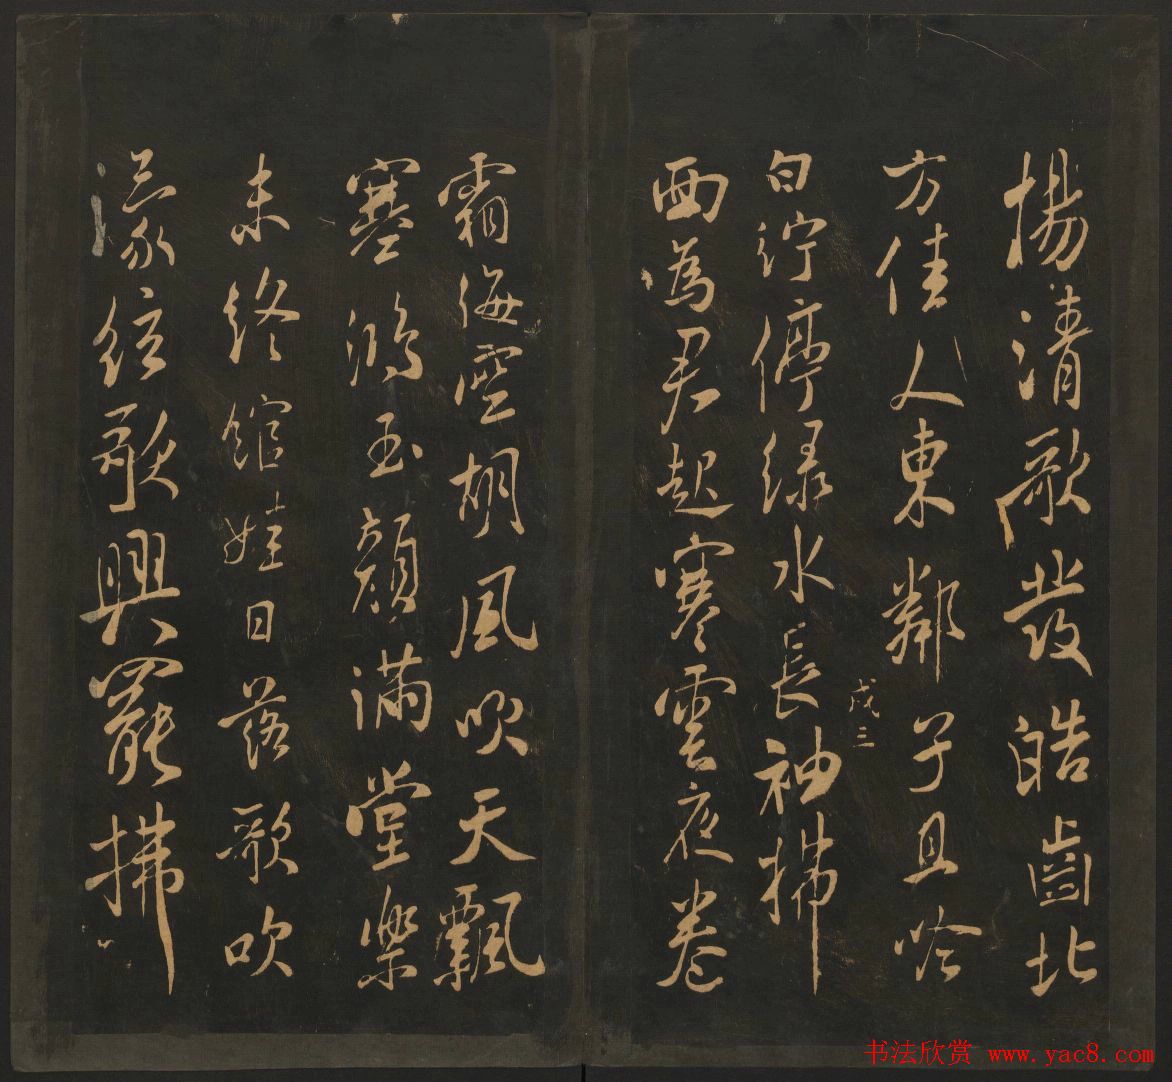 揚清歌發皓齒北
方佳人東鄰子且吟
戊三
白紵停綠水長袖拂
面為君起寒雲夜卷
霜海空胡風吹天飄
塞鴻玉顏滿堂樂
未終館娃日落歌吹
濛絃歌興罷拂
书法欣赏 www.yac8.com